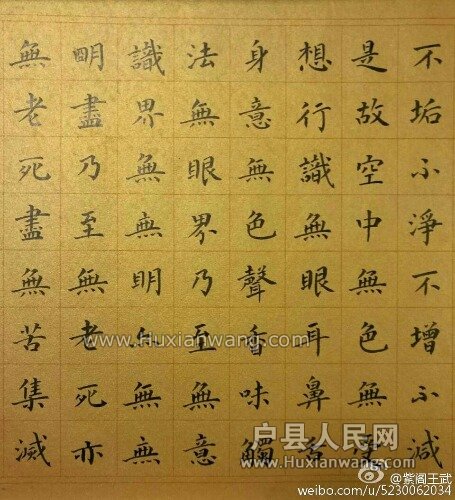 不垢不淨不增不減
是故空中無色無受
想行識無眼耳鼻舌
身意無色聲香味觸
法無眼界乃至無意
識界無無明亦無無
明盡乃至無老死亦
無老死盡無苦集滅
www.Huxianwang.com
户县人民网
www.Huxianwang.com
@紫阁王武
weibo.com/u/5230062034